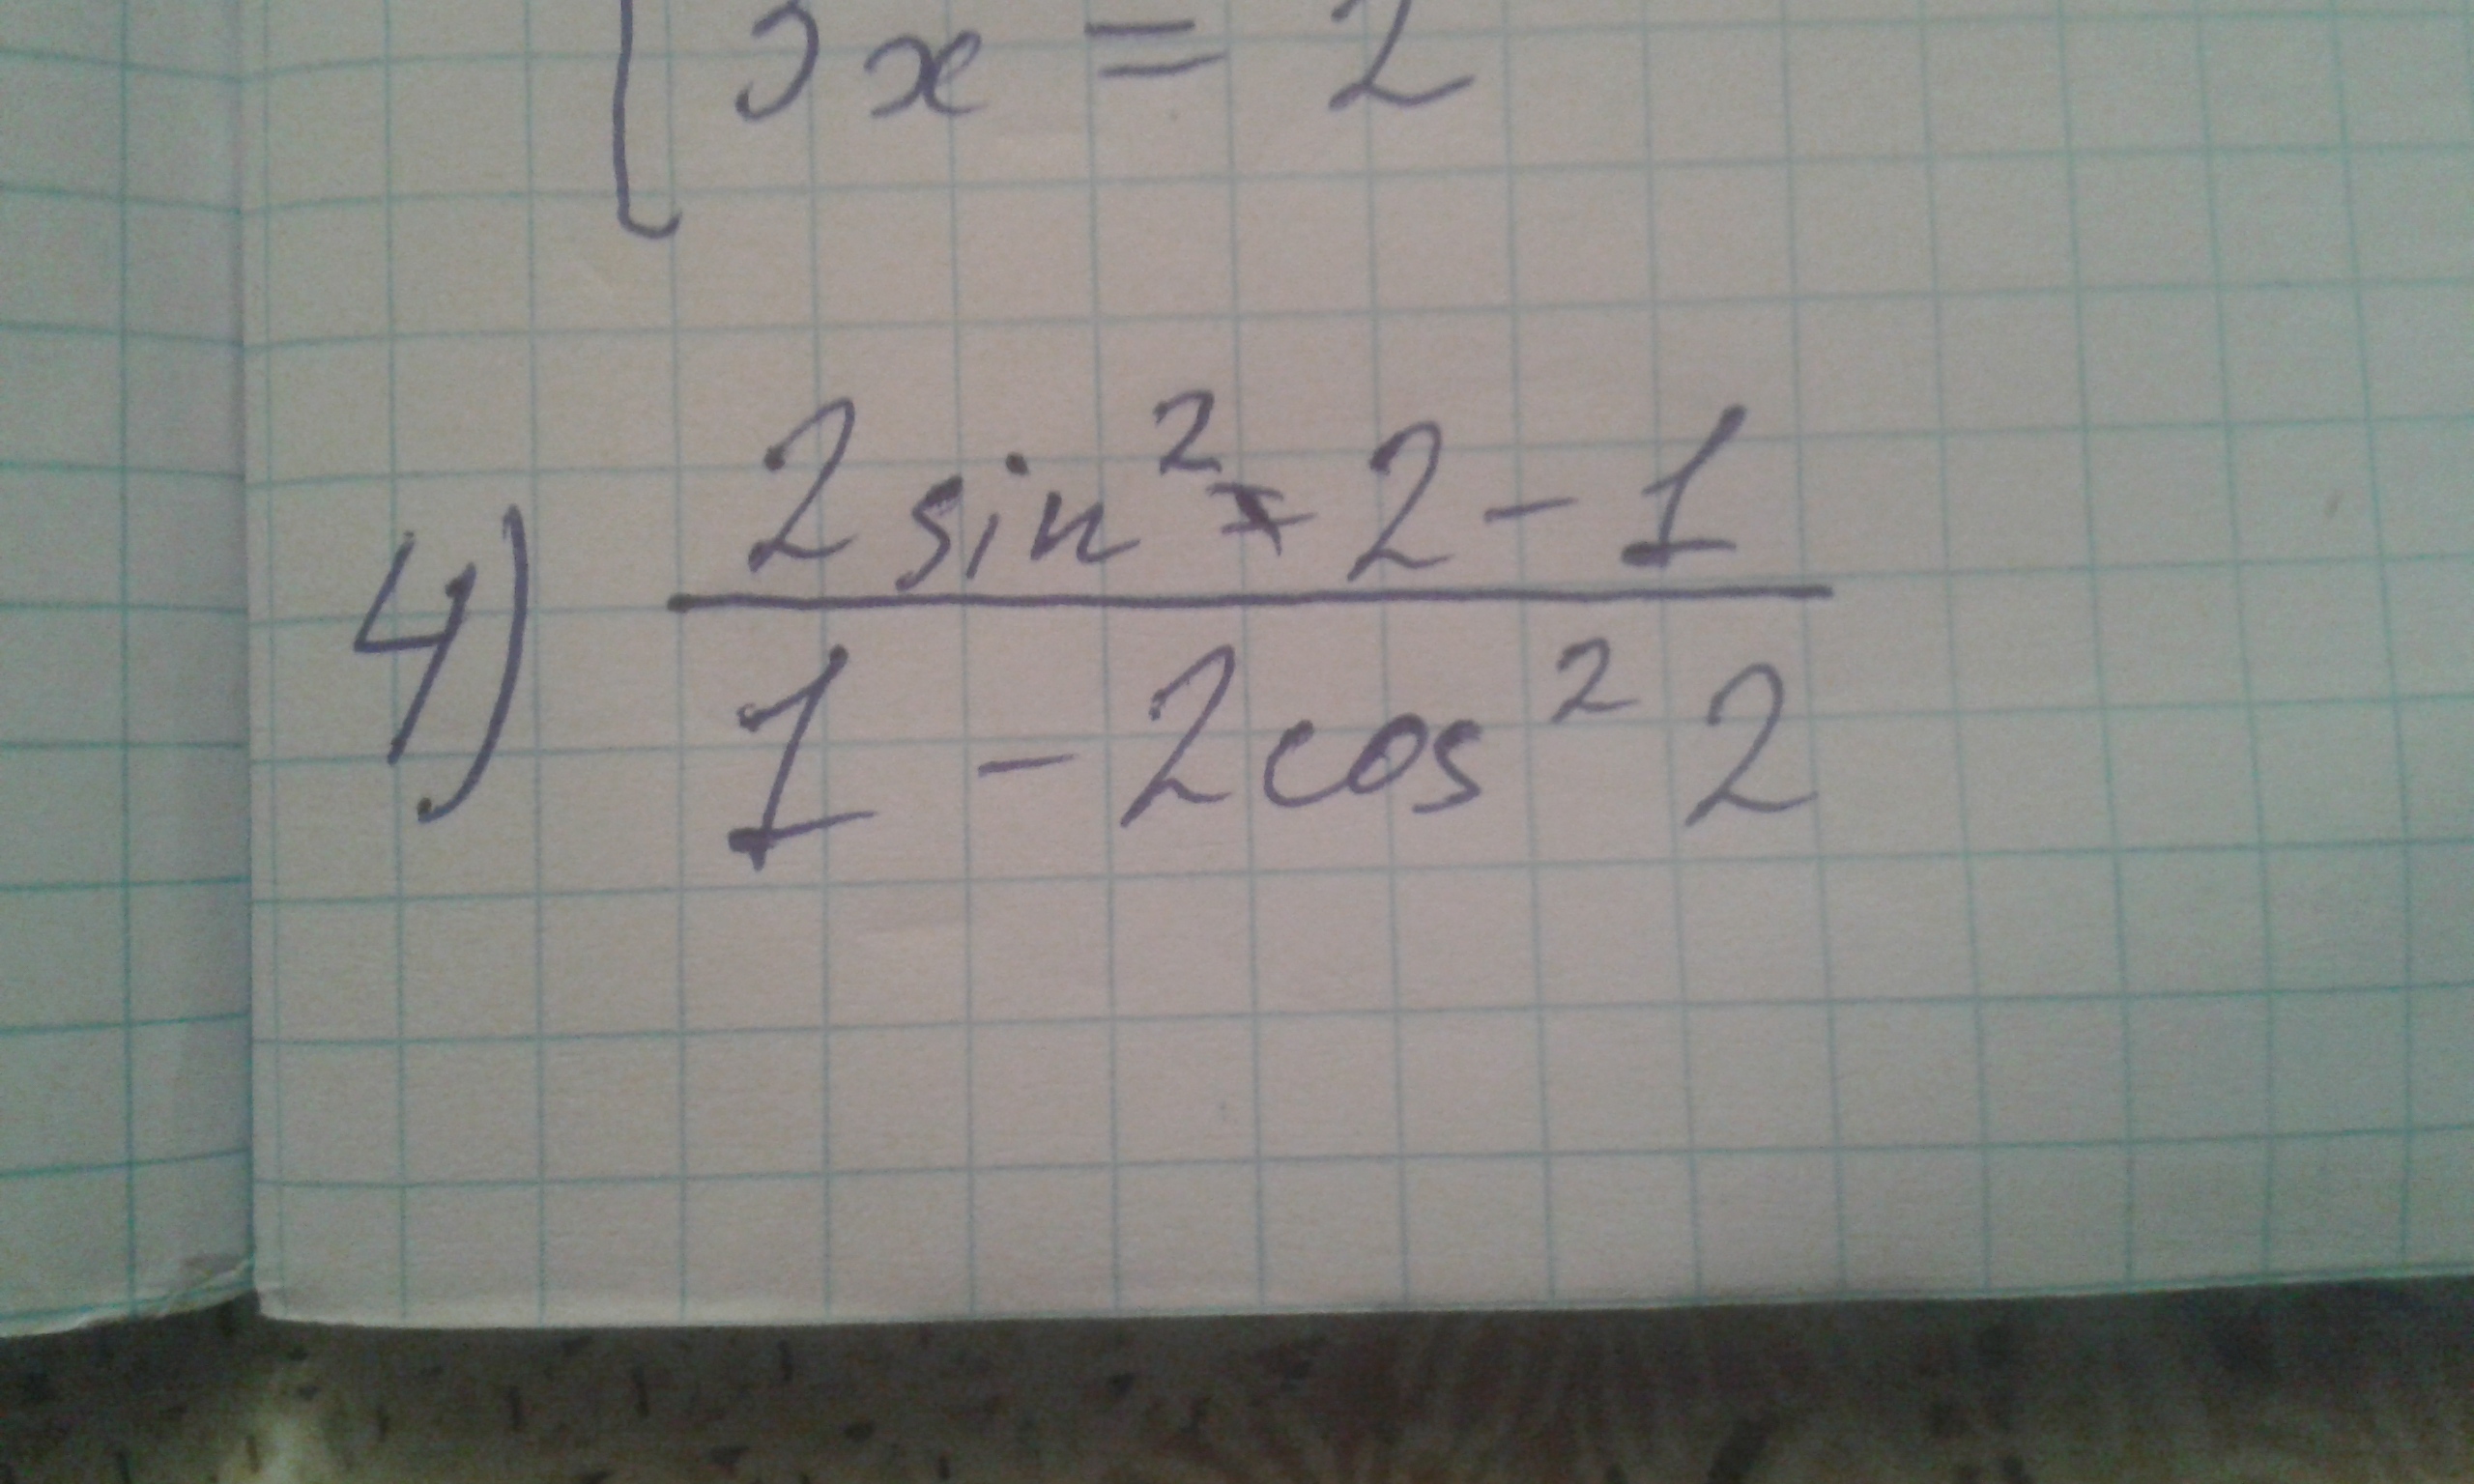 3x = 2
4) 2 sin² 2 - 1
1 - 2 cos² 2